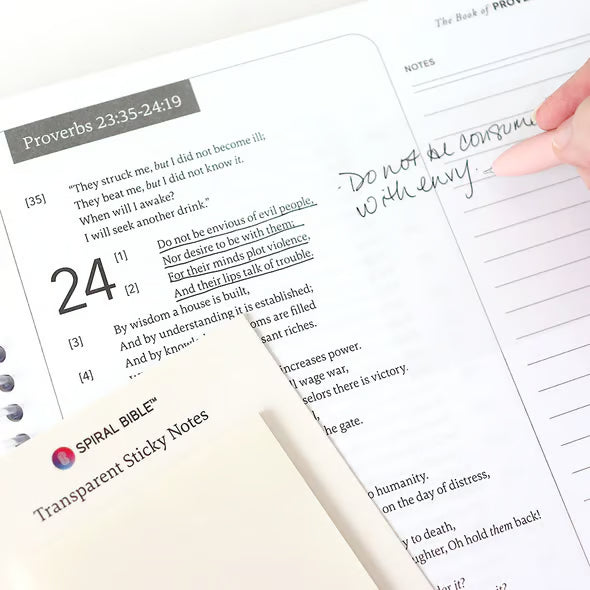 The Book of PROV
NOTES
Proverbs 23:35-24:19
[35] "They struck me, but I did not become ill;
They beat me, but I did not know it.
When will I awake?
I will seek another drink."
Do not be consume
with envy.
24
[1] Do not be envious of evil people,
Nor desire to be with them;
[2] For their minds plot violence,
And their lips talk of trouble.
[3] By wisdom a house is built,
And by understanding it is established;
[4] And by oms are filled
sant riches.
increases power.
wage war,
selors there is victory.
he gate.
o humanity.
on the day of distress,
y to death,
ughter, Oh hold them back!
er it?
it?
SPIRAL BIBLE™
Transparent Sticky Notes